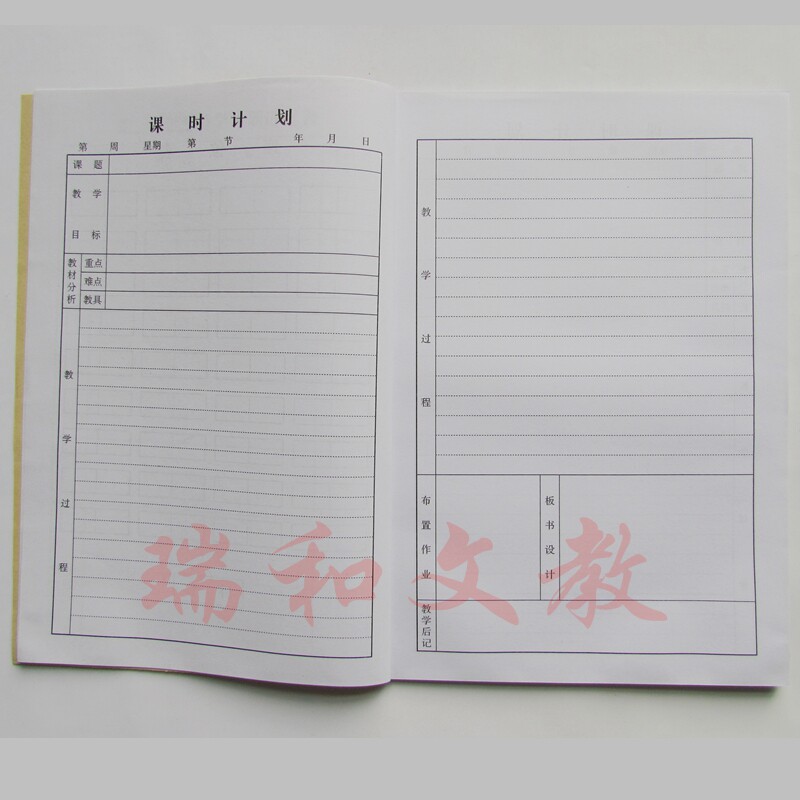 课时计划
第 周 星期 第 节 年 月 日
课题
教学
目标
教材分析
重点
难点
教具
教学过程
教学过程
布置作业
板书设计
教学后记
瑞和文教